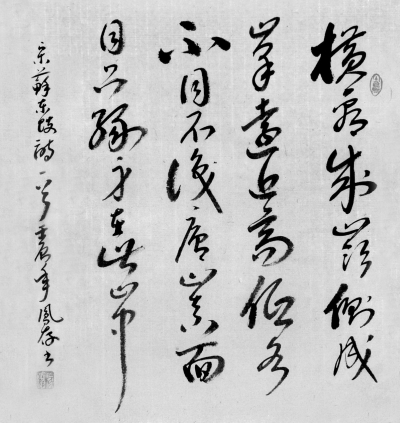 橫看成嶺側成
峯遠近高低各
不同不識廬山真面
目只緣身在此山中
宋蘇東坡詩一首